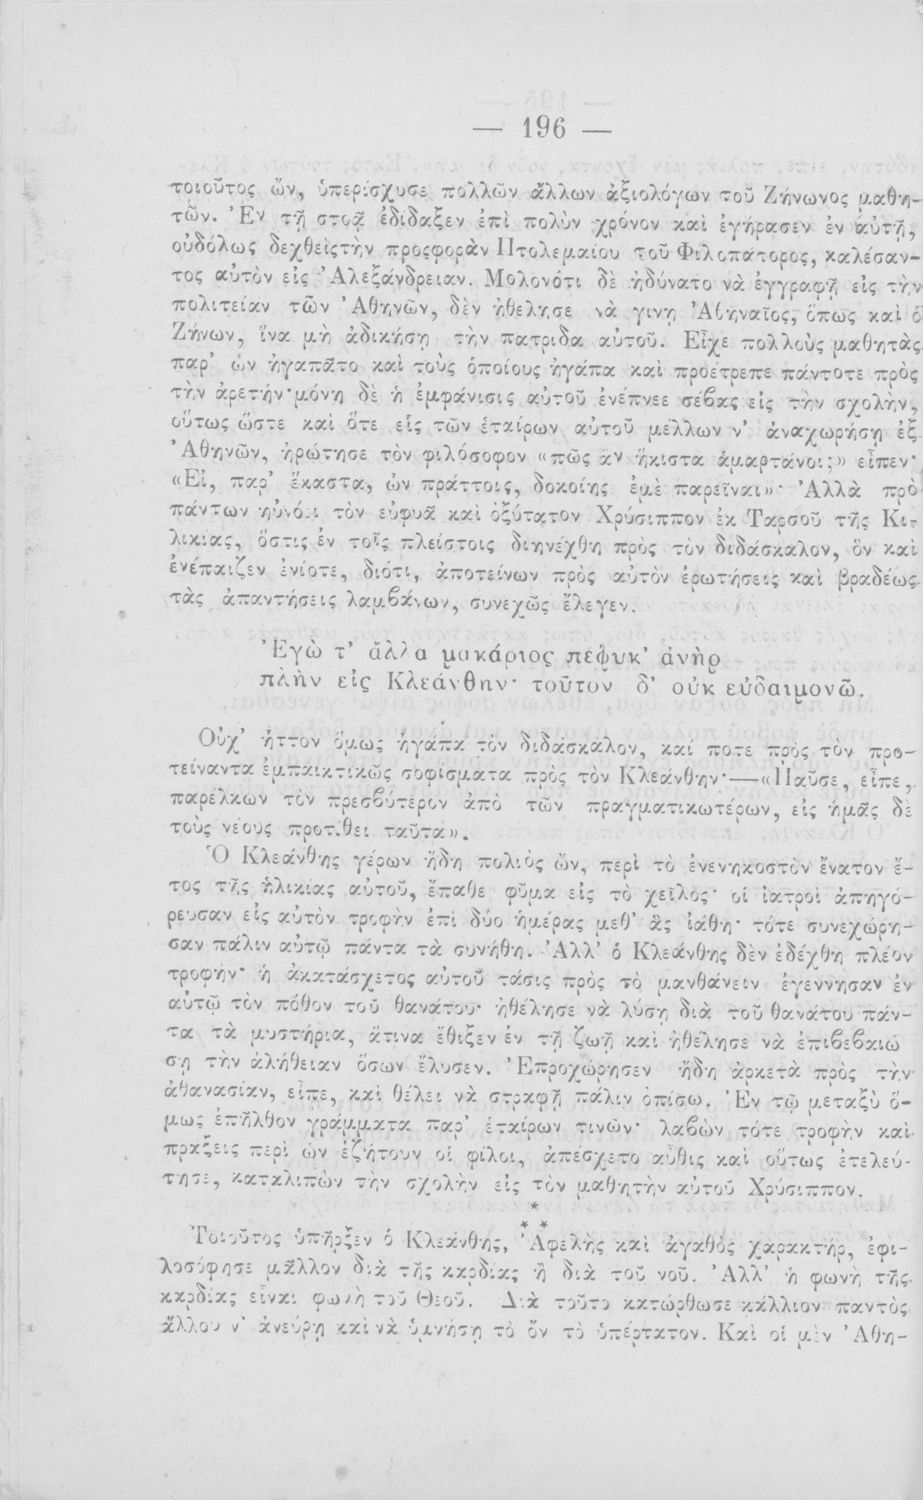 — 196 —
τοιοῦτος ὤν, ὑπερίσχυσε πολλῶν ἄλλων ἀξιολόγων τοῦ Ζήνωνος μαθη-
τῶν. Ἐν τῇ στοᾷ ἐδίδαξεν ἐπὶ πολὺν χρόνον καὶ ἐγήρασεν ἐν αὐτῇ,
οὐδόλως δεχθεὶς τὴν προςφορὰν Πτολεμαίου τοῦ Φιλοπάτορος, καλέσαν-
τος αὐτὸν εἰς Ἀλεξάνδρειαν. Μολονότι δὲ ἠδύνατο νὰ ἐγγραφῇ εἰς τὴν
πολιτείαν τῶν Ἀθηνῶν, δὲν ἠθέλησε νὰ γινῃ Ἀθηναῖος, ὅπως καὶ ὁ
Ζήνων, ἵνα μὴ ἀδικήσῃ τὴν πατρίδα αὐτοῦ. Εἶχε πολλοὺς μαθητὰς
παρ' ὧν ἠγαπᾶτο καὶ τοὺς ὁποίους ἠγάπα καὶ προέτρεπε πάντοτε πρὸς
τὴν ἀρετήν· μόνη δὲ ἡ ἐμφάνισις αὐτοῦ ἐνέπνεε σέβας εἰς τὴν σχολὴν,
οὕτως ὥστε καὶ ὅτε εἷς τῶν ἑταίρων αὐτοῦ μέλλων ν' ἀναχωρήσῃ ἐξ
Ἀθηνῶν, ἠρώτησε τὸν φιλόσοφον «πῶς ἂν ἥκιστα ἁμαρτάνοι;» εἶπεν·
«Εἰ, παρ' ἕκαστα, ὧν πράττοις, δοκοίης ἐμὲ παρεῖναι»· Ἀλλὰ πρὸ
πάντων ηὐνόει τὸν εὐφυᾶ καὶ ὀξύτατον Χρύσιππον ἐκ Ταρσοῦ τῆς Κι-
λικίας, ὅστις ἐν τοῖς πλείστοις διηνέχθη πρὸς τὸν διδάσκαλον, ὃν καὶ
ἐνέπαιζεν ἐνίοτε, διότι, ἀποτείνων πρὸς αὐτὸν ἐρωτήσεις καὶ βραδέως
τὰς ἀπαντήσεις λαμβάνων, συνεχῶς ἔλεγεν.
Ἐγὼ τ' ἄλλα μακάριος πέφυκ' ἀνὴρ
πλὴν εἰς Κλεάνθην· τοῦτον δ' οὐκ εὐδαιμονῶ.
Οὐχ' ἧττον ὅμως ἠγάπα τὸν διδάσκαλον, καί ποτε πρὸς τὸν προ-
τείναντα ἐμπαικτικῶς σοφίσματα πρὸς τὸν Κλεάνθην·—«Παῦσε, εἶπε,
παρέλκων τὸν πρεσβύτερον ἀπὸ τῶν πραγματικωτέρων, εἰς ἡμᾶς δὲ
τοὺς νέους προτίθει ταῦτα».
Ὁ Κλεάνθης γέρων ἤδη πολιὸς ὤν, περὶ τὸ ἐνενηκοστὸν ἔνατον ἔ-
τος τῆς ἡλικίας αὐτοῦ, ἔπαθε φῦμα εἰς τὸ χεῖλος· οἱ ἰατροὶ ἀπηγό-
ρευσαν εἰς αὐτὸν τροφὴν ἐπὶ δύο ἡμέρας μεθ' ἃς ἰάθη· τότε συνεχώρη-
σαν πάλιν αὐτῷ πάντα τὰ συνήθη. Ἀλλ' ὁ Κλεάνθης δὲν ἐδέχθη πλέον
τροφήν· ἡ ἀκατάσχετος αὐτοῦ τάσις πρὸς τὸ μανθάνειν ἐγέννησαν ἐν
αὐτῷ τὸν πόθον τοῦ θανάτου· ἠθέλησε νὰ λύσῃ διὰ τοῦ θανάτου πάν-
τα τὰ μυστήρια, ἅτινα ἔθιξεν ἐν τῇ ζωῇ καὶ ἠθέλησε νὰ ἐπιβεβαιώ
σῃ τὴν ἀλήθειαν ὅσων ἔλυσεν. Ἐπροχώρησεν ἤδη ἀρκετὰ πρὸς τὴν
ἀθανασίαν, εἶπε, καὶ θέλει νὰ στραφῇ πάλιν ὀπίσω. Ἐν τῷ μεταξὺ ὅ-
μως ἐπῆλθον γράμματα παρ' ἑταίρων τινῶν· λαβὼν τότε τροφὴν καὶ
πράξεις περὶ ὧν ἐζήτουν οἱ φίλοι, ἀπέσχετο αὖθις καὶ οὕτως ἐτελεύ-
τησε, καταλιπὼν τὴν σχολὴν εἰς τὸν μαθητὴν αὐτοῦ Χρύσιππον.
*
* *
Τοιοῦτος ὑπῆρξεν ὁ Κλεάνθης, Ἀφελὴς καὶ ἀγαθὸς χαρακτήρ, ἐφι-
λοσόφησε μᾶλλον διὰ τῆς καρδίας ἢ διὰ τοῦ νοῦ. Ἀλλ' ἡ φωνὴ τῆς
καρδίας εἶναι φωνὴ τοῦ Θεοῦ. Διὰ τοῦτο κατώρθωσε κάλλιον παντὸς
ἄλλου ν' ἀνεύρῃ καὶ νὰ ὑμνήσῃ τὸ ὂν τὸ ὑπέρτατον. Καὶ οἱ μὲν Ἀθη-